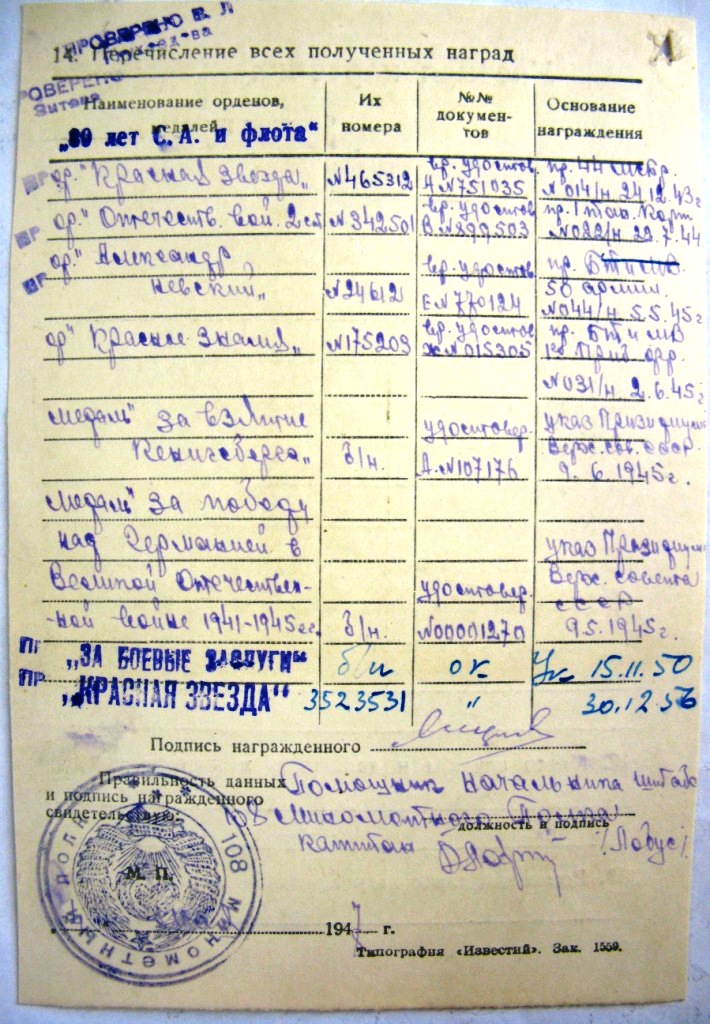 ПРОВЕРЕНО
14. Перечисление всех полученных наград
ПРОВЕРЕНО
Наименование орденов, медалей
Их номера
№№ документов
Основание награждения
„30 лет С. А. и флота“
ПР ор. "Красная Звезда„ N465312 вр. удостов. А N751035 пр. 44 N014/н 24.12.43г
ПР ор." Отечеств. вой. 2 ст N342501 вр. удостов. В N899503 N022/н 22.7.44
ПР ор." Александр
Невский„ N24612 вр. удостов. Е N770124 пр. БТ и МВ 50 армии N044/н 5.5.45г
ор" Красное Знамя„ N175203 вр. удостов. ж N015305 пр. БТ и МВ
N031/н 2.6.45г
медаль" За взятие
Кенигсберга„ б/н. удостовер. А. N107176 указ Президиум Верх. сов. ссср 9.6.1945г.
медаль" За победу
над Германией в
Великой Отечествен-
-ной войне 1941-1945гг. б/н. удостовер. N00001270 указ Президиум Верх. совета СССР 9.5.1945г.
ПР „ЗА БОЕВЫЕ ЗАСЛУГИ“ б/н ок. Ук 15.11.50
ПР „КРАСНАЯ ЗВЕЗДА“ 3523531 " 30.12.56
Подпись награжденного
Правильность данных
и подпись награжденного
свидетельствую:
Помощник Начальника штаба
108 Минометного Полка
должность и подпись
капитан
М. П.
108 МИНОМЕТНЫЙ ПОЛК
" " 1947 г.
Типография «Известий». Зак. 1559.